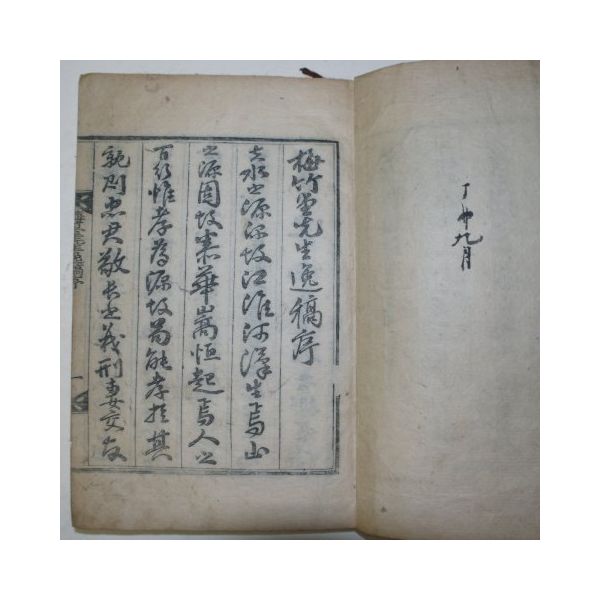 丁卯九月
梅竹堂先生逸稿序
夫水之源深故江淮河漢生焉山
之源固故泰華嵩恒起焉人之
百行惟孝為源故苟能孝於其
親則忠君敬長之義刑妻交友